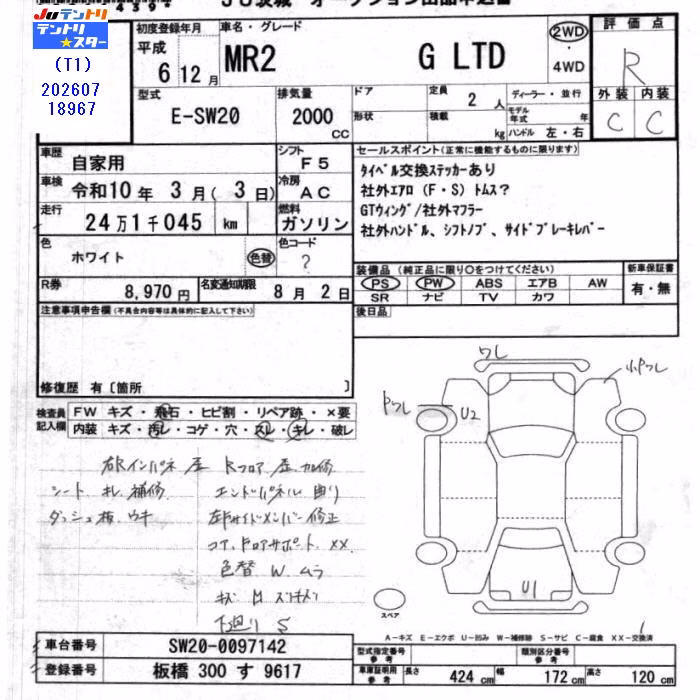 JUテントリ
テントリ★スター
(T1)
202607
18967
JU茨城 オークション出品申込書
初度登録年月
平成
6 12月
車名・グレード
MR2 G LTD
2WD
・
4WD
評価点
R
外装 内装
C C
型式
E-SW20
排気量
2000
CC
ドア
形状
定員 2 人
積載 kg
ディーラー・並行
モデル年式 年
ハンドル 左・右
車歴 自家用
シフト F5
車検 令和10年 3月( 3日)
冷房 AC
走行 24万1千045 km
燃料 ガソリン
色 ホワイト 色替
色コード ?
R券 8,970円
名変通知期限 8月 2日
セールスポイント(正常に機能するものに限ります)
タイベル交換ステッカーあり
社外エアロ (F・S) トムス?
GTウィング/社外マフラー
社外ハンドル、シフトノブ、サイドブレーキレバー
装備品 (純正品に限り○をつけてください)
PS PW ABS エアB AW
SR ナビ TV カワ
新車保証書
有・無
後日品
注意事項申告欄(不具合内容等は具体的に記入して下さい)
修復歴 有〔箇所 〕
検査員記入欄
FW キズ・飛石・ヒビ割・リペア跡・×要
内装 キズ・汚レ・コゲ・穴・スレ・キレ・破レ
右Rインパネ 歪
シート 札 補修
ダッシュ板 ウキ
Rフロア 歪 加修
エンドパネル 曲り
左Fサイドメンバー 修正
コア、ドロアサポート XX
色替 W ムラ
下廻り S
ワレ
小Pワレ
Pワレ
U2
U1
スペア
A-キズ E-エクボ U-凹み W-補修跡 S-サビ C-腐食 XX-交換済
車台番号 SW20-0097142
登録番号 板橋 300 す 9617
型式指定 参考
類別区分番号 参考
車庫証明用 参考
長さ 424 cm 幅 172 cm 高さ 120 cm